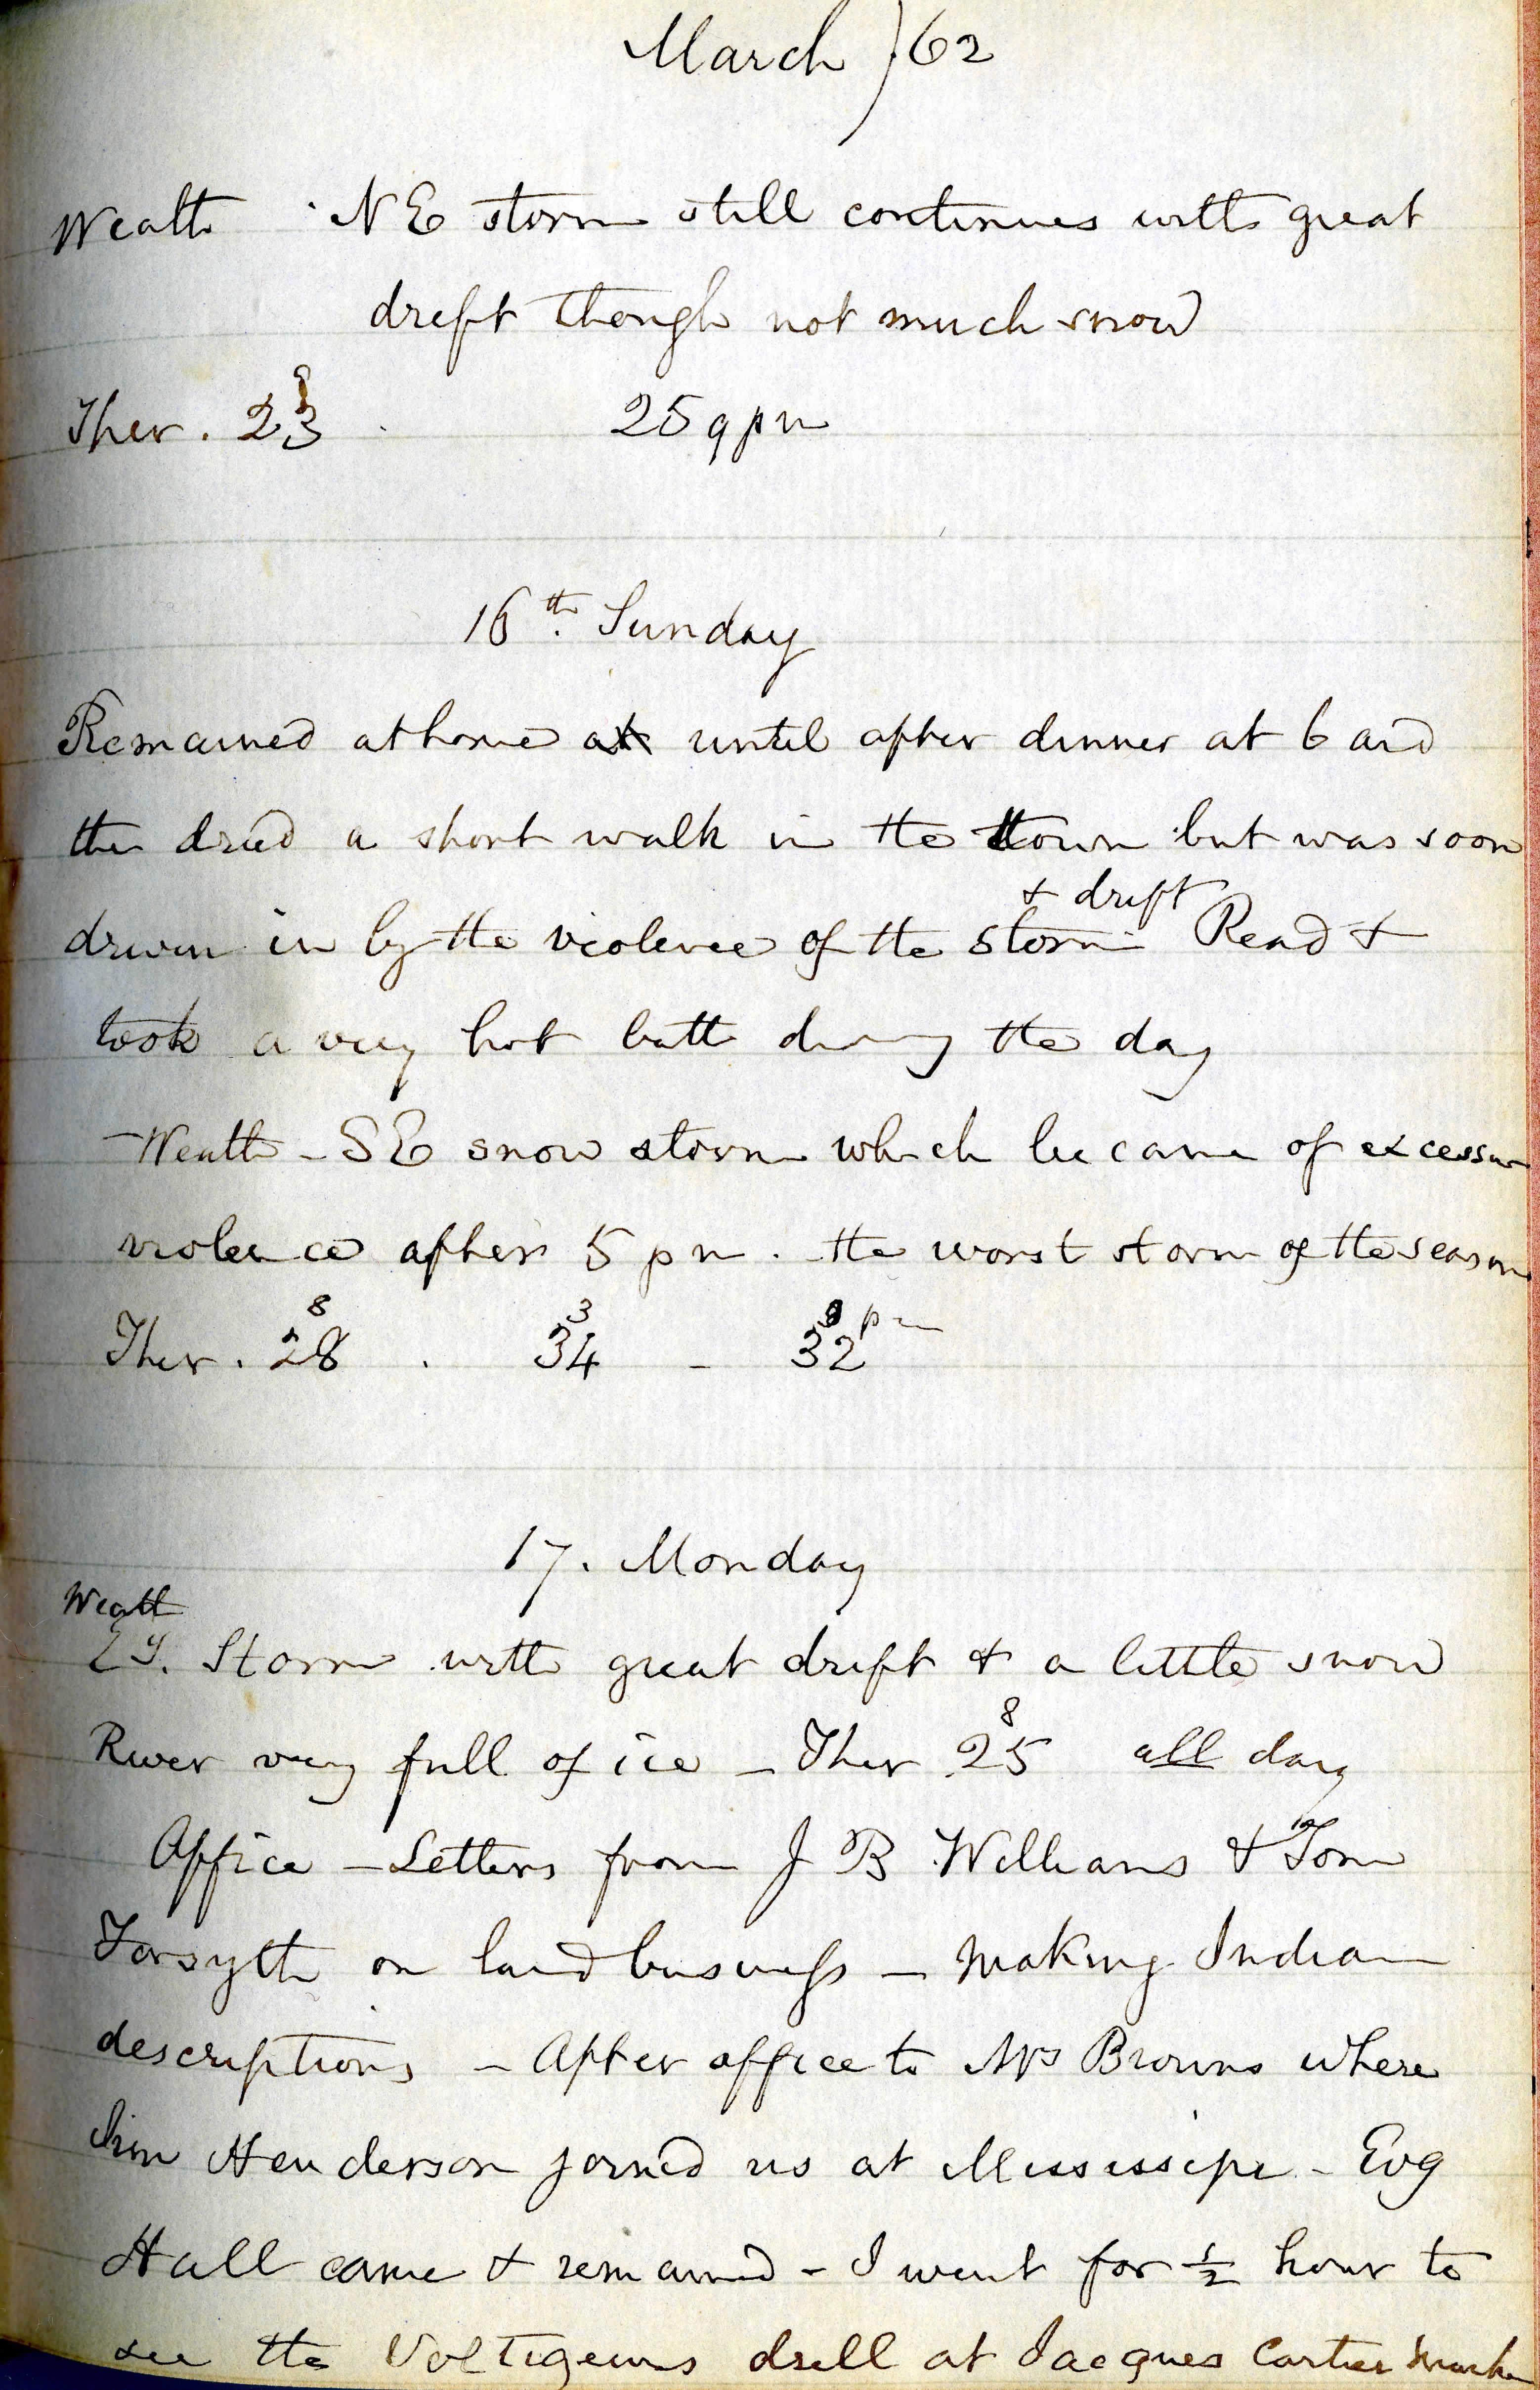 March /62
Weath NE storm still continues with great
drift though not much snow
Ther. 23 8 25 9 pm
16th. Sunday
Remained at home at until after dinner at 6 and
then tried a short walk in the town but was soon
driven in by the violence of the storm & drift Read &
took a very hot bath during the day
Weath - SE snow storm which became of excessive
violence after 5 pm. the worst storm of the season
Ther. 28 8 . 34 3 - 32 9 pm
17. Monday
Weath
Ely. Storm with great drift & a little snow
River very full of ice - Ther 25 8 all day
Office - Letters from J B Williams & Tom
Forsyth on land business - Making Indian
descriptions - After office to Mrs Browns where
Jim Henderson joined us at Mississipi - Evg
Hall came & remained - I went for 1/2 hour to
see the Voltigeurs drill at Jacques Cartier Market